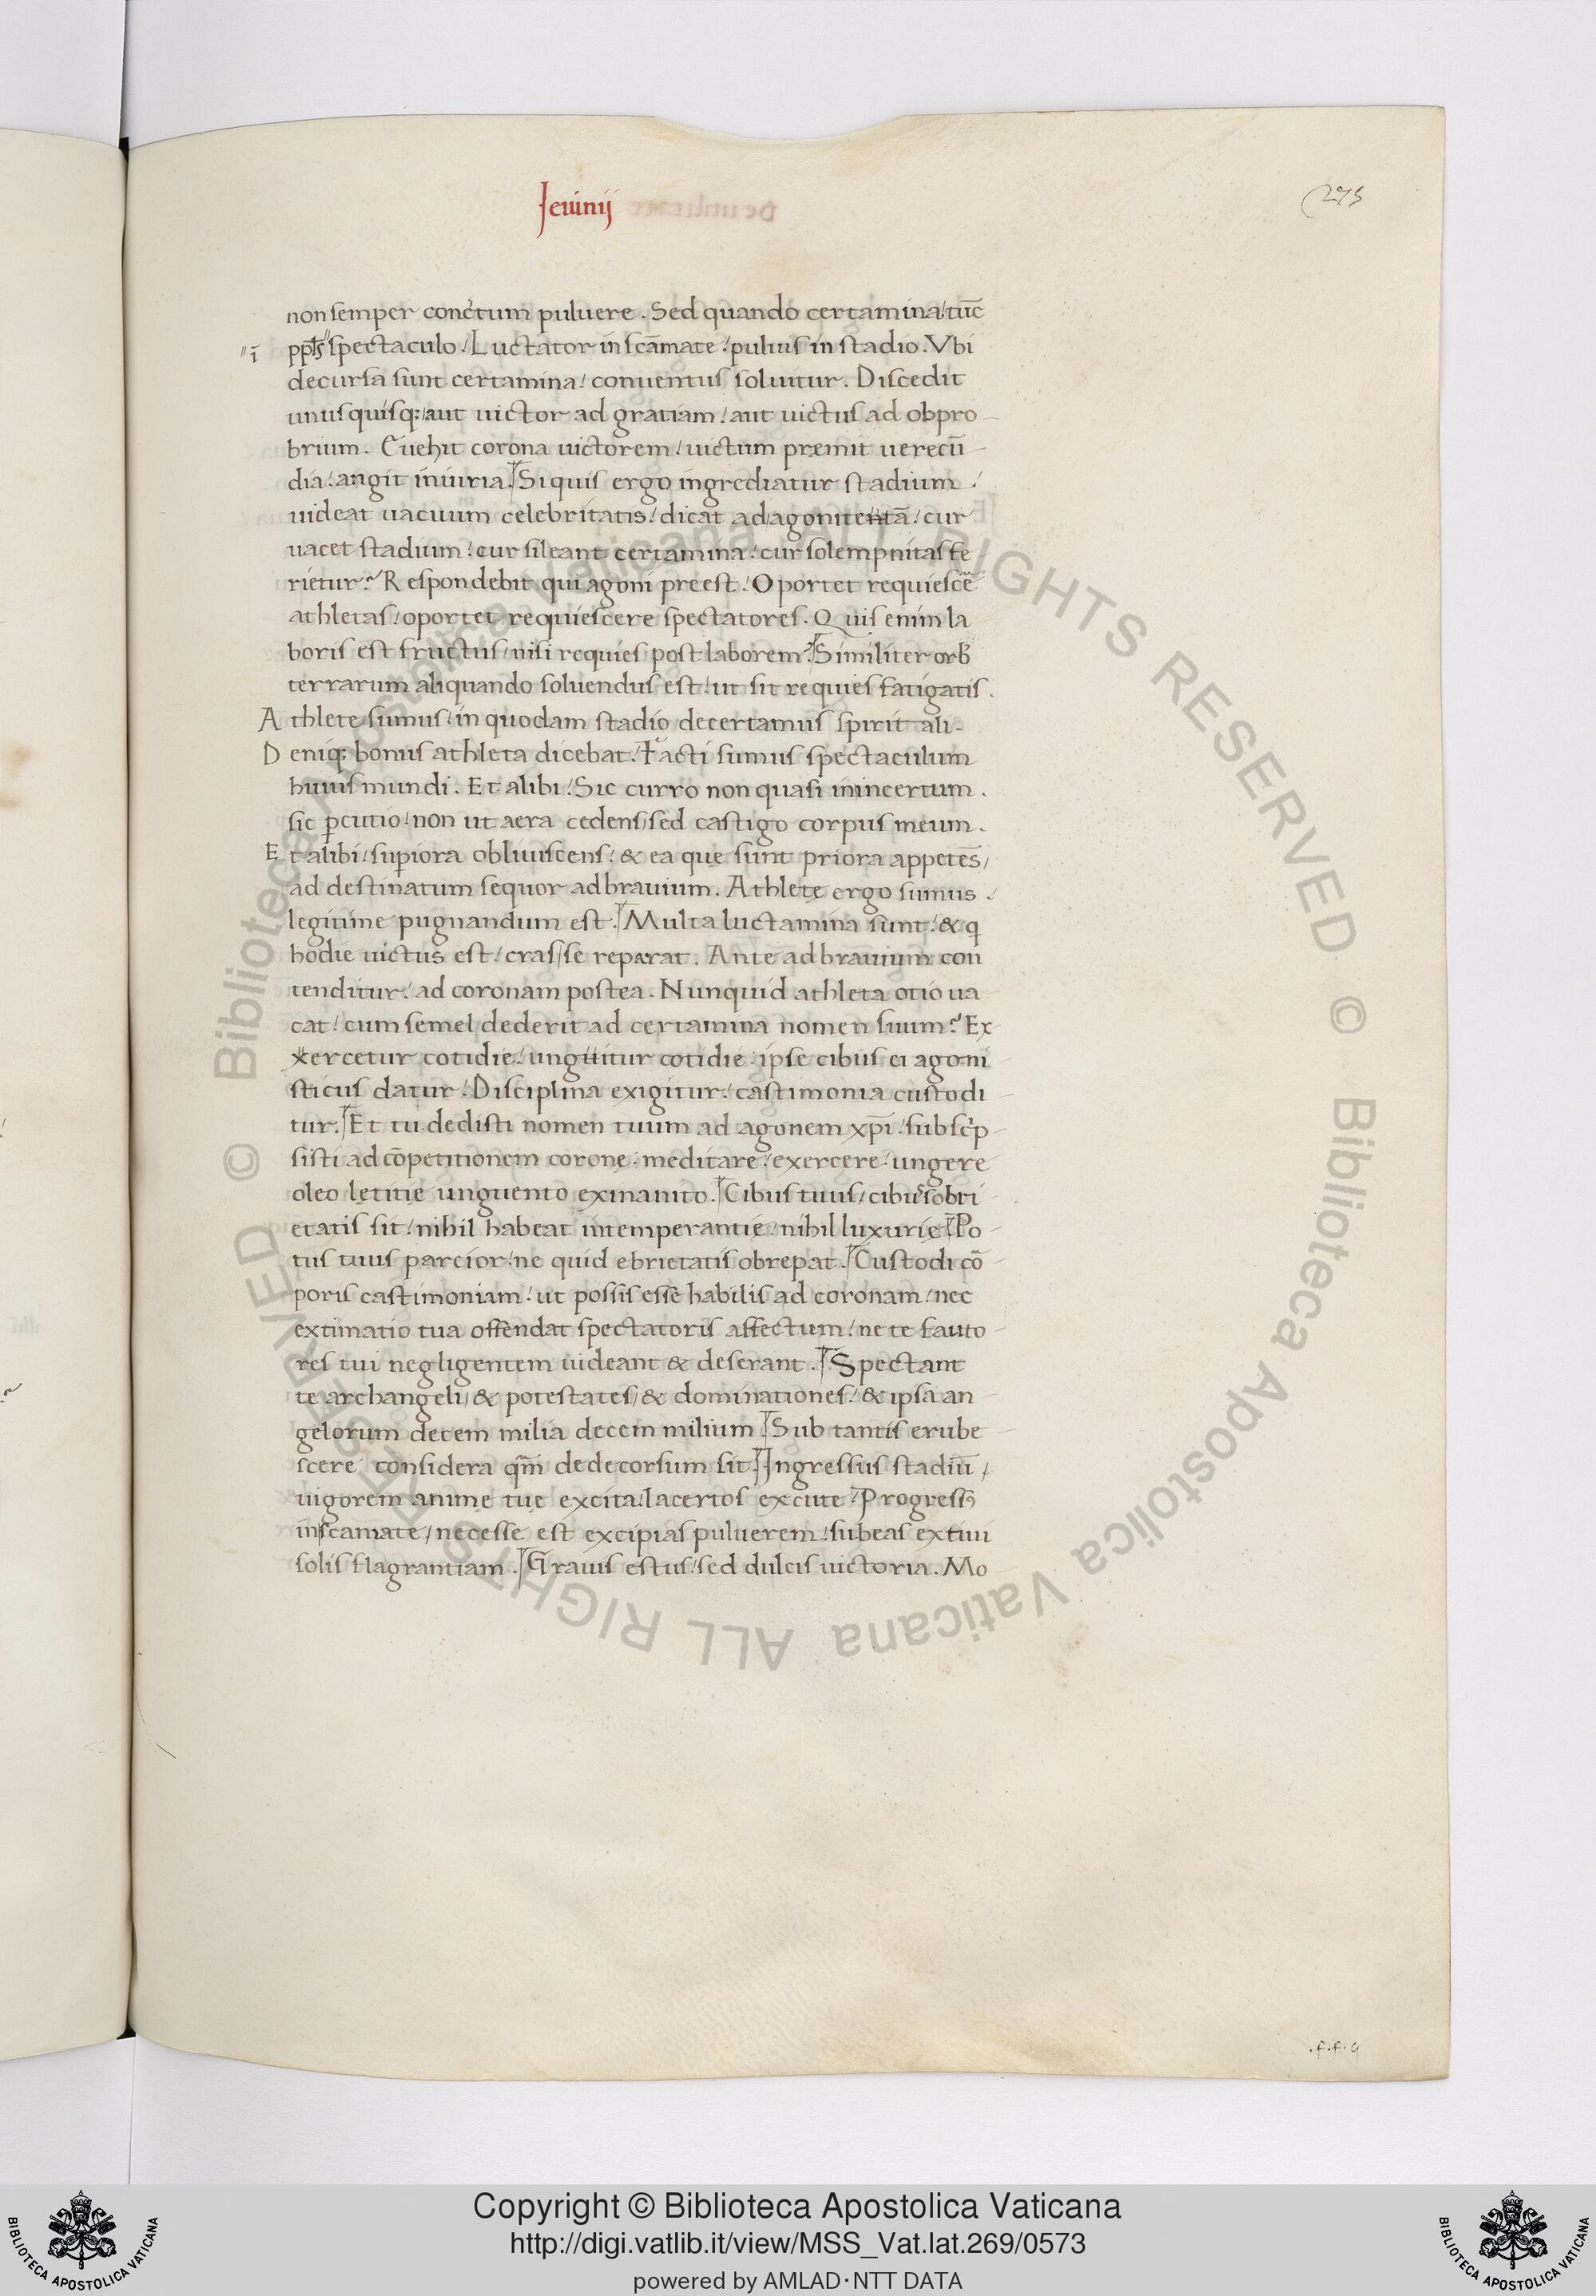 Ieiunij
275
non semper concitum puluere. Sed quando certamina/tūc
ī
ppl̄s spectaculo/Luctator in scāmate/puluis in stadio. Vbi
decursa sunt certamina/conuentus soluitur. Discedit
unusquisq;/aut uictor ad gratiam/aut uictus ad obpro
brium. Euehit corona uictorem/uictum premit uerecū
dia/angit iniuria. Si quis ergo ingrediatur stadium/
uideat uacuum celebritatis/dicat ad agonitentā/cur
uacet stadium/cur sileant certamina/cur solempnitas fe
rietur? Respondebit qui agoni preest/Oportet requiescē
athletas/oportet requiescere spectatores. Quis enim la
boris est fructus/nisi requies post laborem? Similiter orb
terrarum aliquando soluendus est/ut sit requies fatigatis.
Athlete sumus/in quodam stadio decertamus spiritali.
Deniq; bonus athleta dicebat/Facti sumus spectaculum
huius mundi. Et alibi/Sic curro non quasi in incertum.
sic ꝑcutio/non ut aera cedens/sed castigo corpus meum.
Et alibi/supiora obliuiscens/& ea que sunt priora appetēs/
ad destinatum sequor ad brauium. Athlete ergo sumus/
legitime pugnandum est. Multa luctamina sunt/& q
hodie uictus est/cras se reparat. Ante ad brauium con
tenditur/ad coronam postea. Nunquid athleta otio ua
cat/cum semel dederit ad certamina nomen suum? Ex
xercetur cotidie/unguitur cotidie. ipse cibus ei agoni
sticus datur/Disciplina exigitur/castimonia custodi
tur. Et tu dedisti nomen tuum ad agonem xp̄i/subscp
sisti ad cōpetitionem coronę. meditare/exercere/ungere
oleo lętitie unguento exinanito. Cibus tuus/cibus sobri
etatis sit/nihil habeat intemperantię/nihil luxurię. Po
tus tuus parcior/ne quid ebrietatis obrepat. Custodi cō
poris castimoniam/ut possis esse habilis ad coronam/nec
extimatio tua offendat spectatoris affectum/ne te fauto
res tui negligentem uideant & deserant. Spectant
te archangeli/& potestates/& dominationes/& ipsa an
gelorum decem milia decem milium. Sub tantis erube
scere considera qm̄ dedecorsum sit. Ingressus stadiū/
uigorem anime tue excita/lacertos excute/Progressꝰ
in scamate/necesse est excipias puluerem/subeas extiui
solis flagrantiam. Grauis estus/sed dulcis uictoria. Mo
.f.f.9
© Biblioteca Apostolica Vaticana ALL RIGHTS RESERVED
© Biblioteca Apostolica Vaticana ALL RIGHTS RESERVED
Copyright © Biblioteca Apostolica Vaticana
http://digi.vatlib.it/view/MSS_Vat.lat.269/0573
powered by AMLAD·NTT DATA
BIBLIOTECA APOSTOLICA VATICANA
BIBLIOTECA APOSTOLICA VATICANA